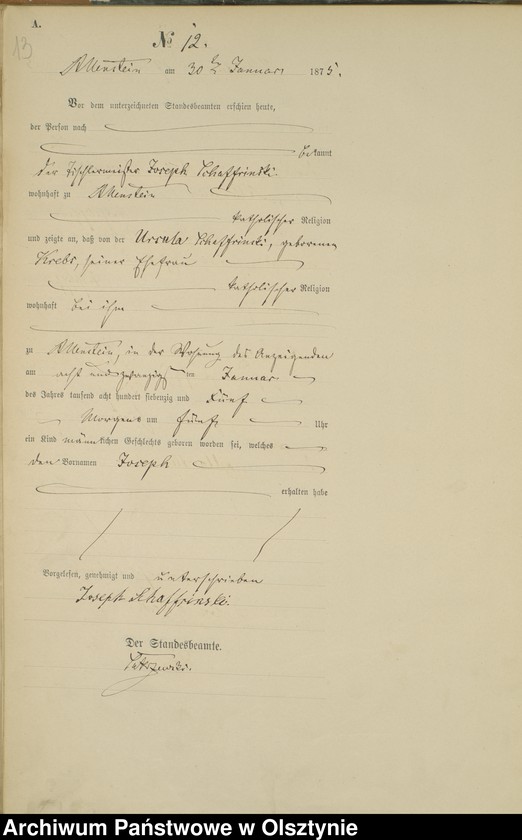 A.
13
No 12.
Allenstein am 30ten Januar 1875.
Vor dem unterzeichneten Standesbeamten erschien heute,
der Person nach
bekannt
der Tischlermeister Joseph Schaffrinski
wohnhaft zu Allenstein
katholischer Religion
und zeigte an, daß von der Ursula Schaffrinski, geborenen
Krebs, seiner Ehefrau
katholischer Religion
wohnhaft bei ihm
zu Allenstein, in der Wohnung des Anzeigenden
am acht und zwanzigsten Januar
des Jahres tausend acht hundert siebenzig und Fünf
Morgens um fünf Uhr
ein Kind männlichen Geschlechts geboren worden sei, welches
den Vornamen Joseph
erhalten habe
Vorgelesen, genehmigt und unterschrieben
Joseph Schaffrinski.
Der Standesbeamte.
Archiwum Państwowe w Olsztynie